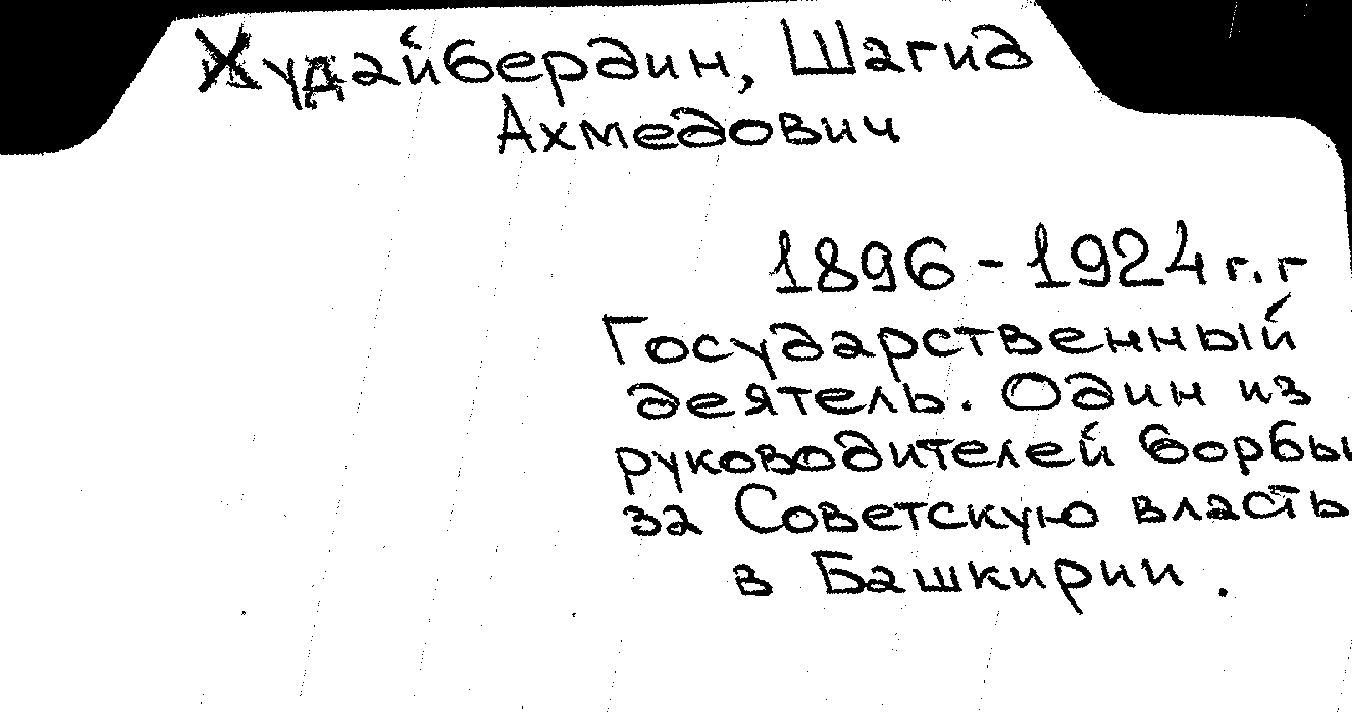 Худайбердин, Шагид
Ахмедович
1896-1924 г.г
Государственный
деятель. Один из
руководителей борбы
за Советскую власть
в Башкирии.